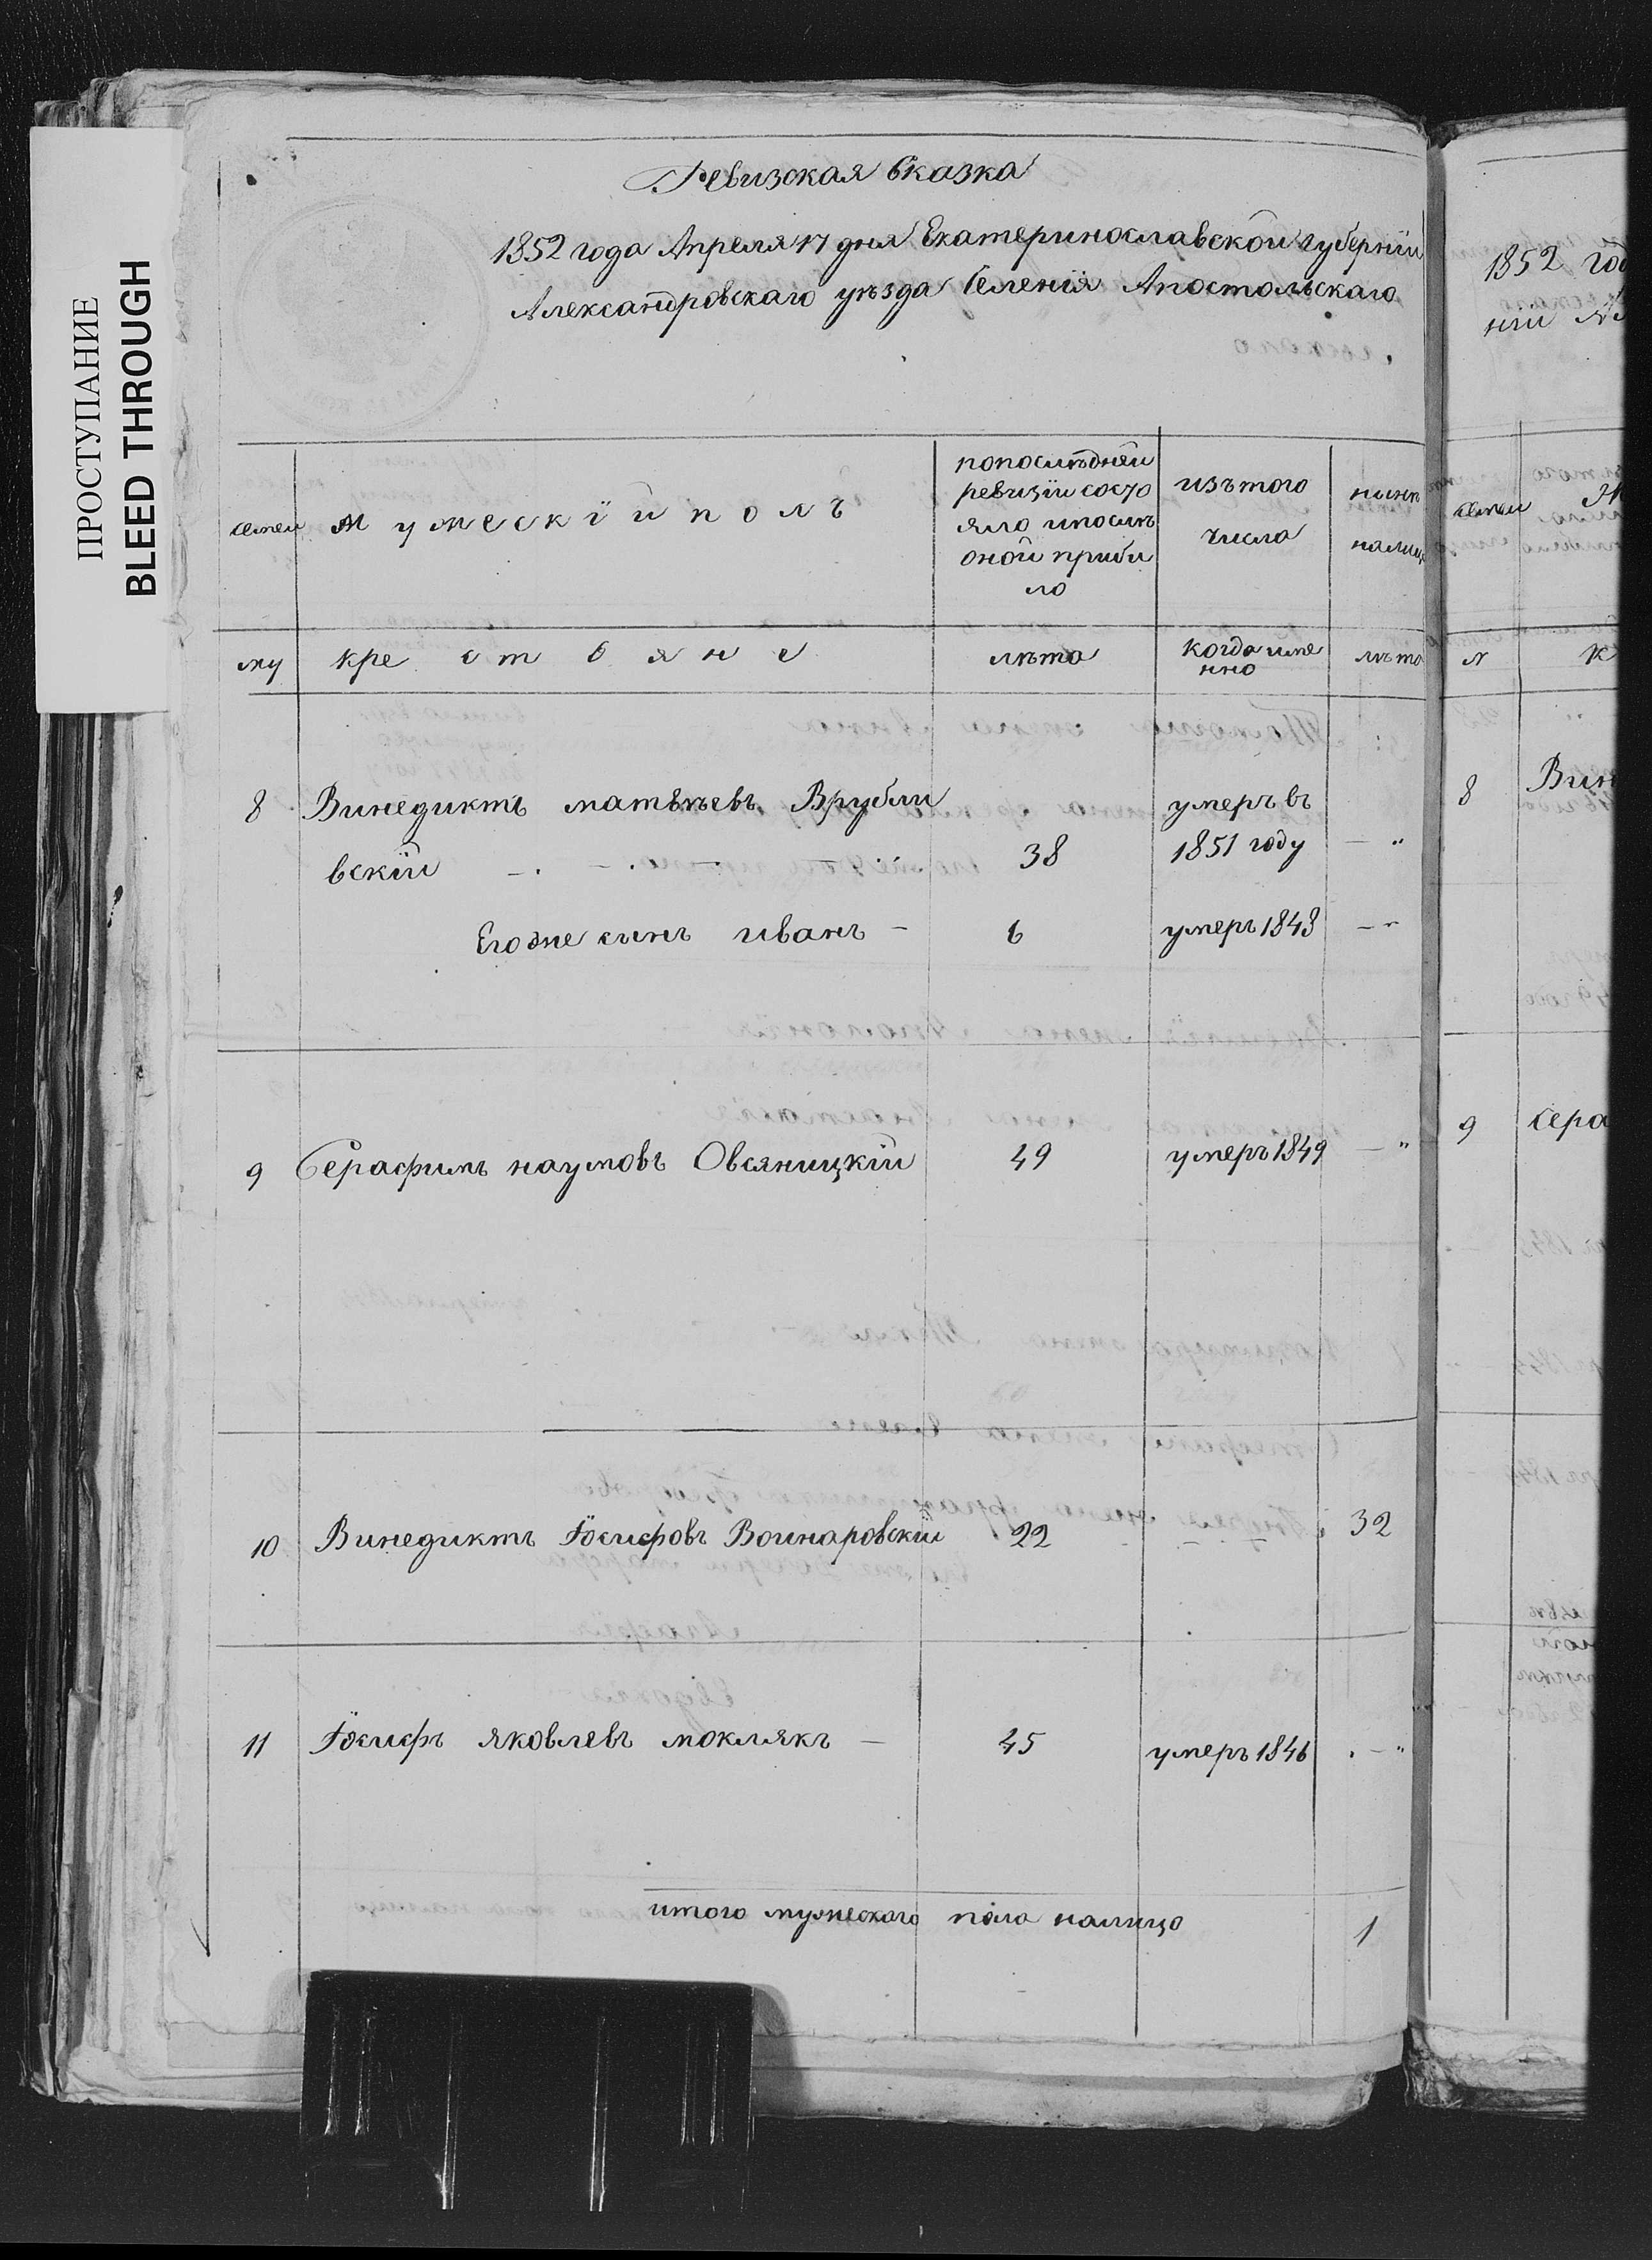 ПРОСТУПАНИЕ
BLEED THROUGH
Ревизская Сказка
1852 года Апреля 17 дня Екатеринославской губернїи
Александровскаго уѣзда Селенія Апостольскаго
семей
Мужескїй полъ
попослѣдней
ревизїи состо
яло ипослѣ
оной прибы
ло
изъ того
числа
нынѣ
налиц
му
крестьяне
лѣта
когда име
нно
лѣта
8 Винедиктъ матвѣевъ Врубли
вскїй 38 умеръ въ
1851 году
Егоже сынъ иванъ - 6 умеръ 1848
9 Серафимъ наумовъ Овсяницкїй 49 умеръ 1849
10 Винедиктъ Їосифовъ Воинаровскїй 22 32
11 Їосифъ яковлевъ моклякъ - 45 умеръ 1846
итого мужескаго пола налицо 1
1852 год
нїи
семьи
№ К
8 Вин
9 Сера